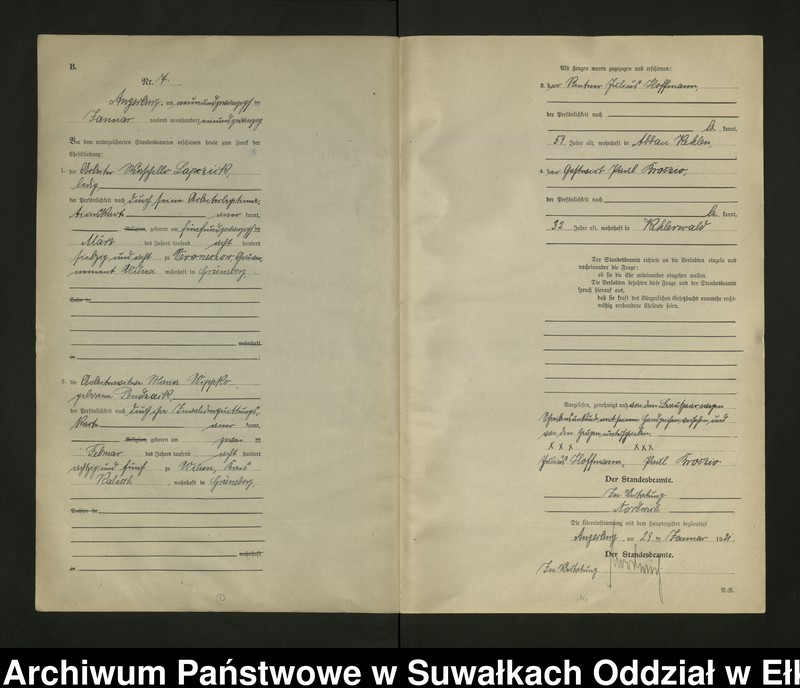 B.
Nr. 7.
Angerburg, am neunundzwanzigsten
Januar tausend neunhundert einundzwanzig
Vor dem unterzeichneten Standesbeamten erschienen heute zum Zweck der
Eheschließung:
1. der Arbeiter
ledig
der Persönlichkeit nach durch seine
kannt,
Religion, geboren am fünfundzwanzigsten
März des Jahres tausend acht hundert
siebzig und acht zu
nement Wilna wohnhaft in Grüneberg
Sohn de
wohnhaft
in
2. die Arbeiterwitwe
geborene
der Persönlichkeit nach durch ihre Invalidenquittungs-
karte kannt,
Religion, geboren am zwei
Februar des Jahres tausend acht hundert
achtzig und fünf zu Kreis
Kalisch, wohnhaft in Grüneberg,
Tochter de
wohnhaft
in
Als Zeugen waren zugezogen und erschienen:
3. der Rentner Julius Hoffmann,
der Persönlichkeit nach
be kannt,
59 Jahre alt, wohnhaft in Abbau Kehlen,
4. der Gastwirt Paul Kroszio,
der Persönlichkeit nach
be kannt,
32 Jahre alt, wohnhaft in Kehlerwald
Der Standesbeamte richtete an die Verlobten einzeln und
nacheinander die Frage:
ob sie die Ehe miteinander eingehen wollen.
Die Verlobten bejahten diese Frage und der Standesbeamte
sprach hierauf aus,
daß sie kraft des Bürgerlichen Gesetzbuchs nunmehr recht-
mäßig verbundene Eheleute seien.
Vorgelesen, genehmigt und von dem Brautpaar wegen
Schreibensunkunde mit seinem Handzeichen versehen, und
von den Zeugen unterschrieben.
x x x x x x
Julius Hoffmann, Paul Kroszio
Der Standesbeamte.
In Vertretung
Nordwich
Die Übereinstimmung mit dem Hauptregister beglaubigt
Angerburg, am 29 ten Januar 1921.
Der Standesbeamte.
In Vertretung
Archiwum Państwowe w Suwałkach Oddział w Ełk